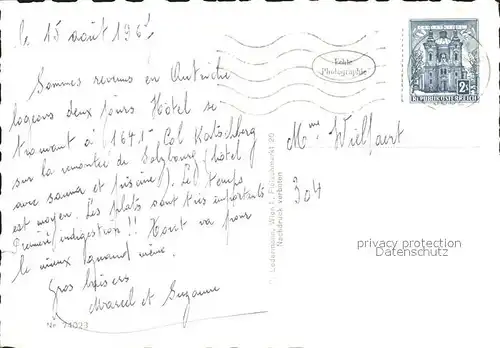 le 15 août 196
Sommes revenus en Autriche
logeons deux jours Hotel se
trouvant à 1641 - Col Katschberg
sur la remontée de Salzbourg (hôtel
avec sauna et piscine). Le temps
est moyen. Les plats sont très importants
Première indigestion !! Tout va pour
le mieux quand même.
Gros baisers
Marcel et Suzanne
Nr. 74023
Echte
Photographie
REPUBLIK ÖSTERREICH
Mme Wielfaert
304
Ledermann, Wien I., Fleischmarkt 20
Nachdruck verboten
privacy protection
Datenschutz